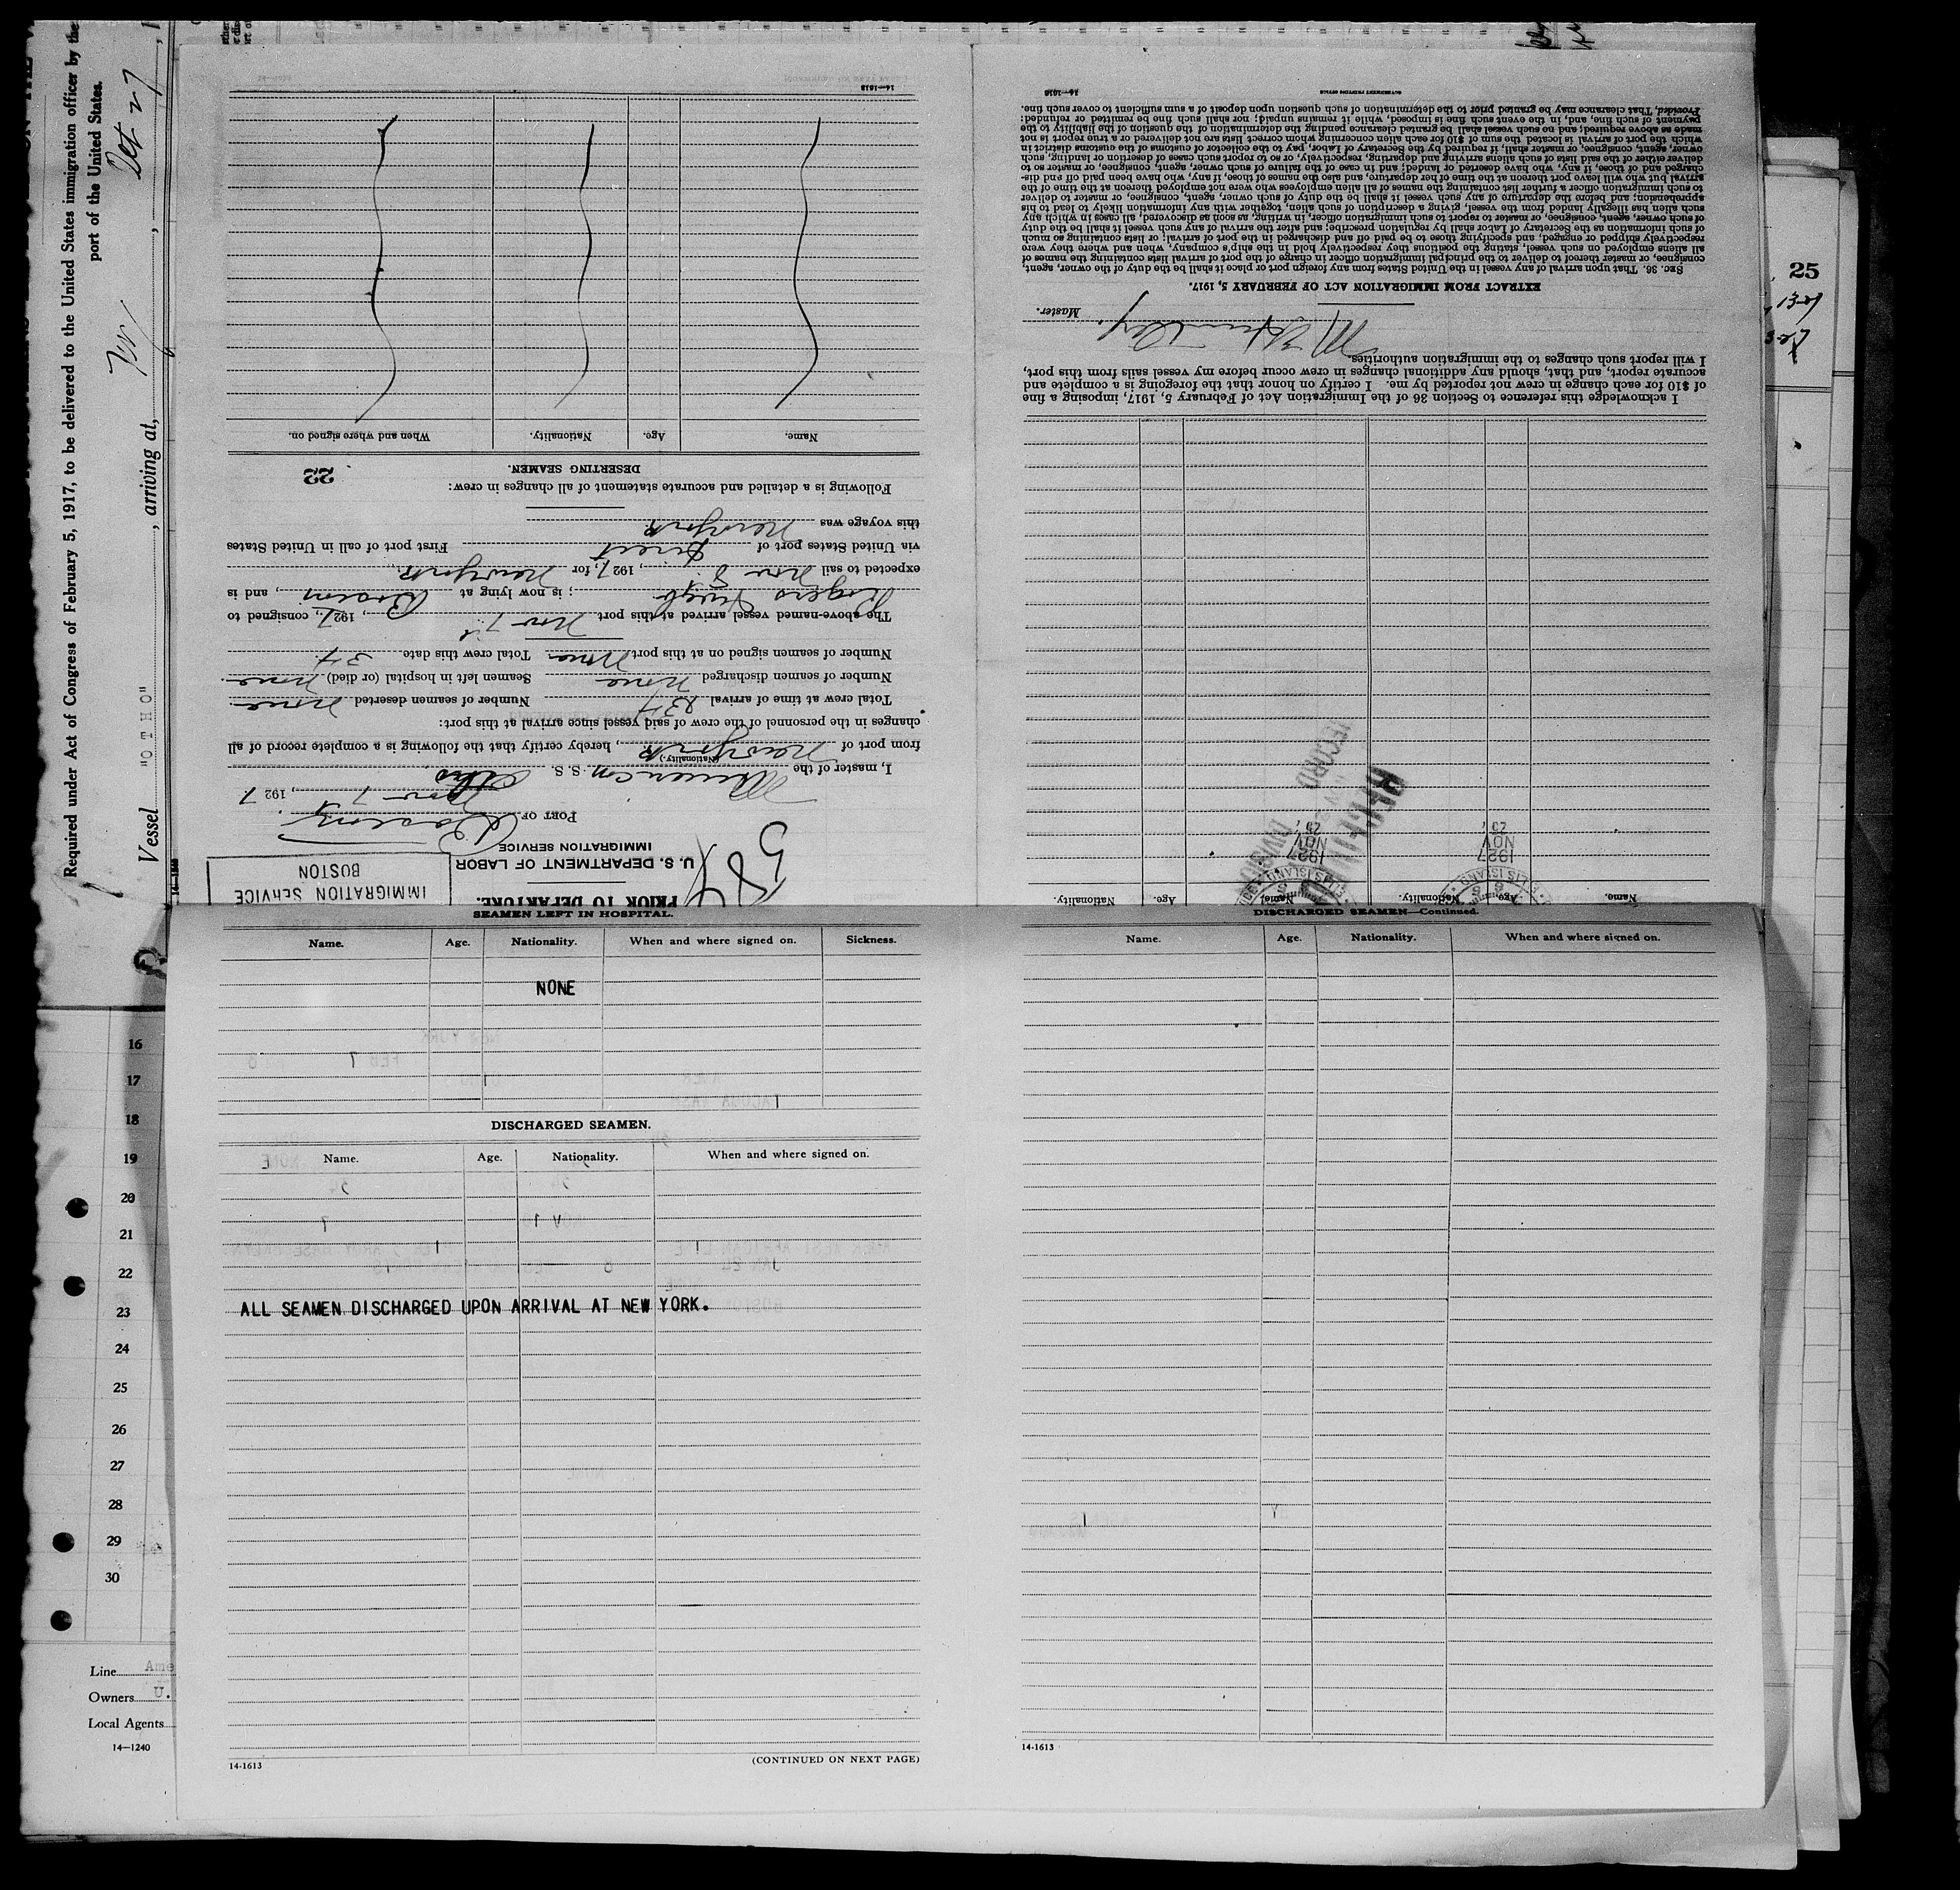 Required under Act of Congress of February 5, 1917, to be delivered to the United States immigration officer by the
port of the United States.
Vessel "OTHO" , arriving at,
25
14—1240
PRIOR TO DEPARTURE.
U. S. DEPARTMENT OF LABOR
IMMIGRATION SERVICE
IMMIGRATION SERVICE
BOSTON
584
PORT OF Boston
Nov 7 , 192 7
I, master of the American S. S. Otho
(Nationality.)
from port of New York , hereby certify that the following is a complete record of all
changes in the personnel of the crew of said vessel since arrival at this port:
Total crew at time of arrival 34 Number of seamen deserted none
Number of seamen discharged none Seamen left in hospital (or died) none
Number of seamen signed on at this port none Total crew this date 34
The above-named vessel arrived at this port Nov 7th , 1927, consigned to
Rogers ; is now lying at Boston , and is
expected to sail Nov 8 , 1927, for New York
via United States port of Direct First port of call in United States
this voyage was New York
Following is a detailed and accurate statement of all changes in crew:
DESERTING SEAMEN.
22
Name. Age. Nationality. When and where signed on.
14—1613
Name. Age. Nationality. Name. Age.
ELLIS ISLAND
1927
NOV
29
ELLIS ISLAND
1927
NOV
29
RECORD DIVISION
I acknowledge this reference to Section 36 of the Immigration Act of February 5, 1917, imposing a fine
of $10 for each change in crew not reported by me. I certify on honor that the foregoing is a complete and
accurate report, and that, should any additional changes in crew occur before my vessel sails from this port,
I will report such changes to the immigration authorities.
Master.
EXTRACT FROM IMMIGRATION ACT OF FEBRUARY 5, 1917.
SEC. 36. That upon arrival of any vessel in the United States from any foreign port or place it shall be the duty of the owner, agent,
consignee, or master thereof to deliver to the principal immigration officer in charge of the port of arrival lists containing the names of
all aliens employed on such vessel, stating the positions they respectively hold in the ship's company, when and where they were
respectively shipped or engaged, and specifying those to be paid off and discharged in the port of arrival; or lists containing so much
of such information as the Secretary of Labor shall by regulation prescribe; and after the arrival of any such vessel it shall be the duty
of such owner, agent, consignee, or master to report to such immigration officer, in writing, as soon as discovered, all cases in which any
such alien has illegally landed from the vessel, giving a description of such alien, together with any information likely to lead to his
apprehension; and before the departure of any such vessel it shall be the duty of such owner, agent, consignee, or master to deliver
to such immigration officer a further list containing the names of all alien employees who were not employed thereon at the time of the
arrival but who will leave port thereon at the time of her departure, and also the names of those, if any, who have been paid off and dis-
charged and of those, if any, who have deserted or landed; and in case of the failure of such owner, agent, consignee, or master so to
deliver either of the said lists of such aliens arriving and departing, respectively, or so to report such cases of desertion or landing, such
owner, agent, consignee, or master, shall, if required by the Secretary of Labor, pay to the collector of customs of the customs district in
which the port of arrival is located the sum of $10 for each alien concerning whom correct lists are not delivered or a true report is not
made as above required; and no such vessel shall be granted clearance pending the determination of the question of the liability to the
payment of such fine, and, in the event such fine is imposed, while it remains unpaid; nor shall such fine be remitted or refunded:
Provided, That clearance may be granted prior to the determination of such question upon deposit of a sum sufficient to cover such fine.
14—1613
GOVERNMENT PRINTING OFFICE
SEAMEN LEFT IN HOSPITAL.
Name. Age. Nationality. When and where signed on. Sickness.
NONE
DISCHARGED SEAMEN.
Name. Age. Nationality. When and where signed on.
ALL SEAMEN DISCHARGED UPON ARRIVAL AT NEW YORK.
14-1613
(CONTINUED ON NEXT PAGE)
DISCHARGED SEAMEN—Continued.
Name. Age. Nationality. When and where signed on.
14-1613
16
17
18
19
20
21
22
23
24
25
26
27
28
29
30
Line Ame
Owners U.
Local Agents
14—1240